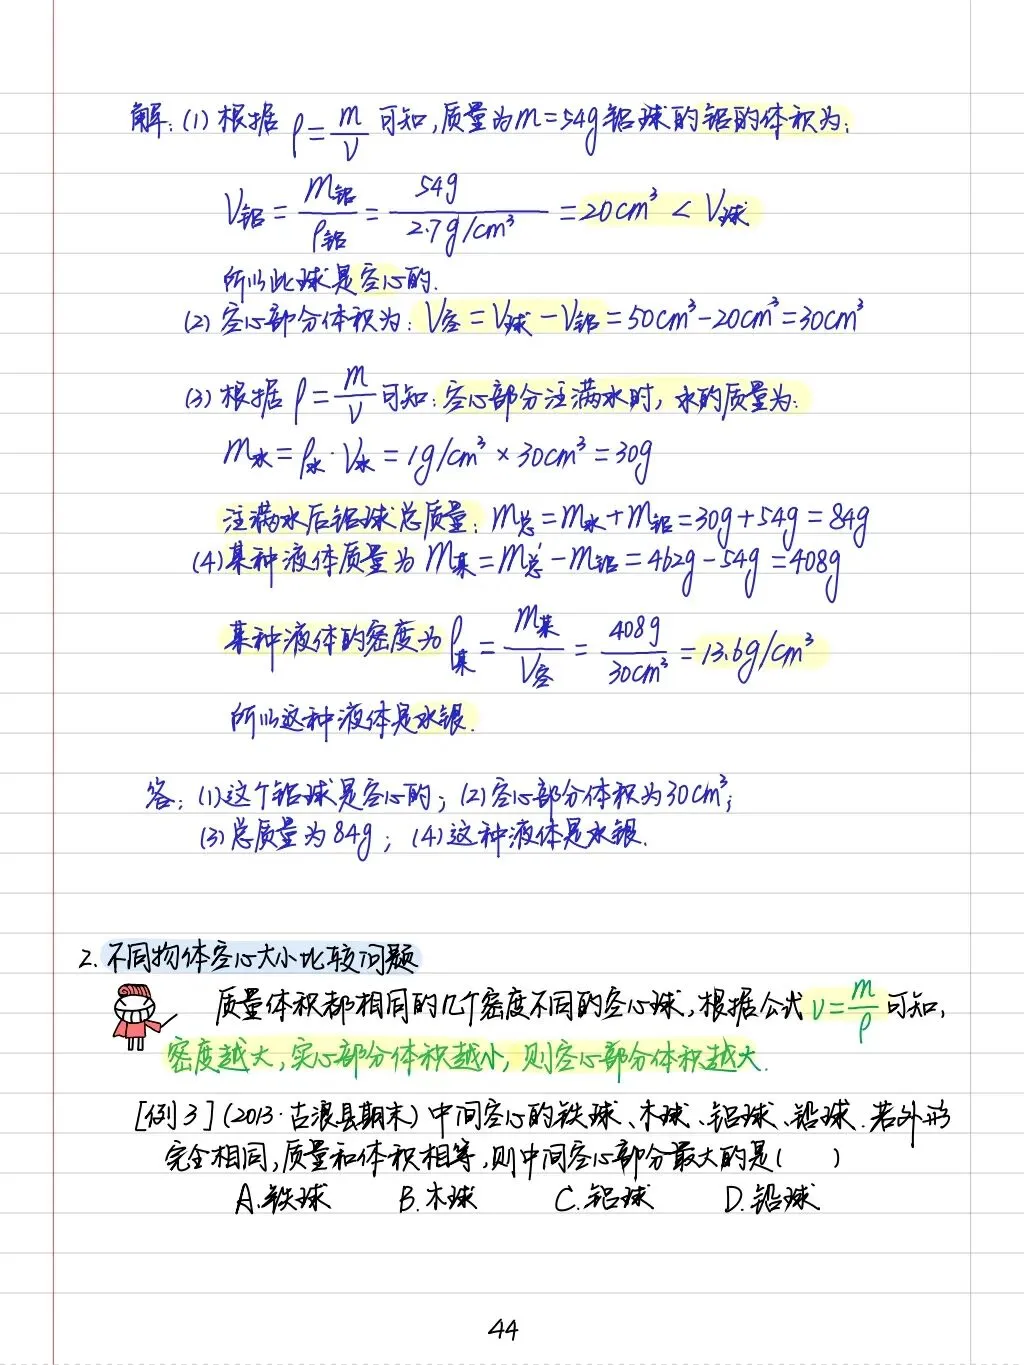 解:(1)根据ρ=m/V可知,质量为m=54g铝球的铝的体积为:
V铝=m铝/ρ铝=54g/2.7g/cm³=20cm³<V球
所以此球是空心的.
(2)空心部分体积为:V空=V球-V铝=50cm³-20cm³=30cm³
(3)根据ρ=m/V可知:空心部分注满水时,水的质量为:
m水=ρ水·V水=1g/cm³×30cm³=30g
注满水后铝球总质量:m总=m水+m铝=30g+54g=84g
(4)某种液体质量为m某=m总'-m铝=462g-54g=408g
某种液体的密度为ρ某=m某/V空=408g/30cm³=13.6g/cm³
所以这种液体是水银.
答:(1)这个铝球是空心的;(2)空心部分体积为30cm³;
(3)总质量为84g;(4)这种液体是水银.
2.不同物体空心大小比较问题
质量体积都相同的几个密度不同的空心球,根据公式v=m/ρ可知,
密度越大,实心部分体积越小,则空心部分体积越大.
[例3](2013·古浪县期末)中间空心的铁球、木球、铝球、铅球.若外形
完全相同,质量和体积相等,则中间空心部分最大的是( )
A.铁球 B.木球 C.铝球 D.铅球
44